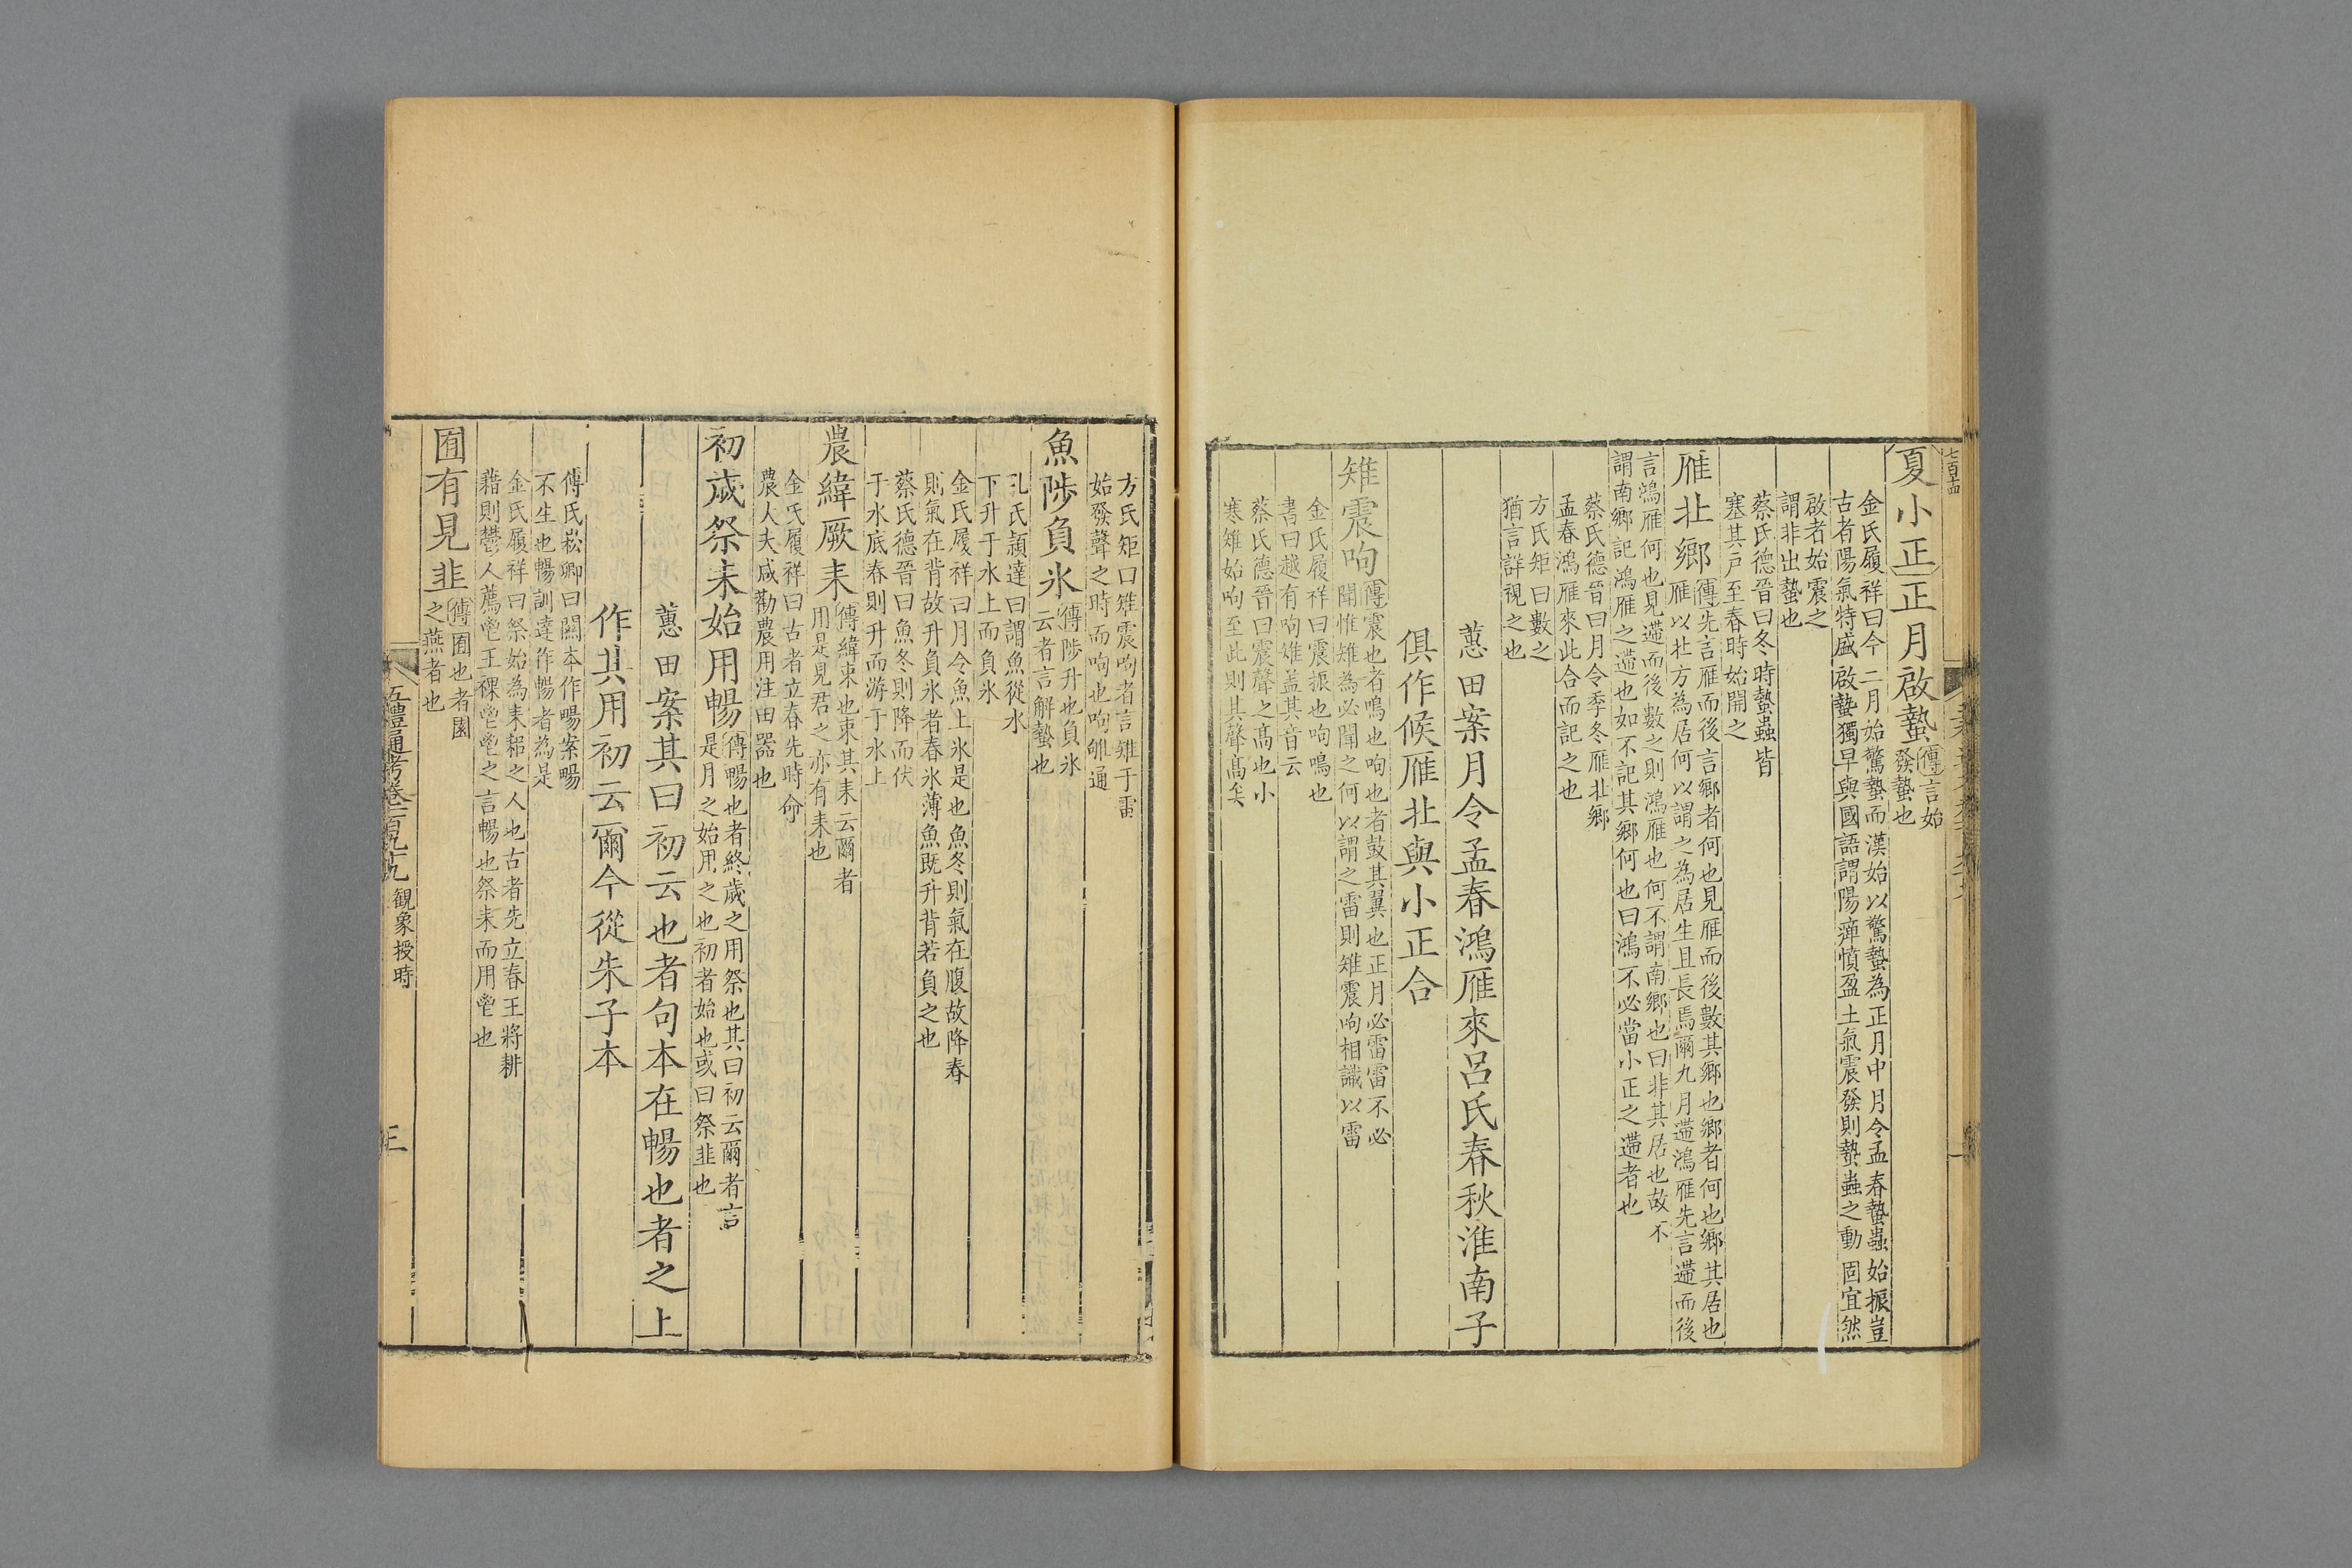 七百十四
夏小正正月啟蟄傳言始
發蟄也
金氏履祥曰今二月始驚蟄而漢始以驚蟄為正月中月令孟春蟄蟲始振豈
古者陽氣特盛啟蟄獨早與國語謂陽癉憤盈土氣震發則蟄蟲之動固宜然
啟者始震之
謂非出蟄也
蔡氏德晉曰冬時蟄蟲皆
塞其戸至春時始開之
雁北鄉傳先言雁而後言鄉者何也見雁而後數其鄉也鄉者何也鄉其居也
雁以北方為居何以謂之為居生且長焉爾九月遰鴻雁先言遰而後
言鴻雁何也見遰而後數之則鴻雁也何不謂南鄉也曰非其居也故不
謂南鄉記鴻雁之遰也如不記其鄉何也曰鴻不必當小正之遰者也
蔡氏德晉曰月令季冬雁北鄉
孟春鴻雁來此合而記之也
方氏矩曰數之
猶言詳視之也
蕙田案月令孟春鴻雁來呂氏春秋淮南子
俱作候雁北與小正合
雉震呴傳震也者鳴也呴也者鼓其翼也正月必雷雷不必
聞惟雉為必聞之何以謂之雷則雉震呴相識以雷
金氏履祥曰震振也呴鳴也
書曰越有呴雉蓋其音云
蔡氏德晉曰震聲之高也小
寒雉始呴至此則其聲高矣
方氏矩曰雉震呴者言雉于雷
始發聲之時而呴也呴雊通
魚陟負氷傳陟升也負氷
云者言解蟄也
孔氏頴達曰謂魚從水
下升于水上而負氷
金氏履祥曰月令魚上氷是也魚冬則氣在腹故降春
則氣在背故升負氷者春氷薄魚既升背若負之也
蔡氏德晉曰魚冬則降而伏
于水底春則升而游于水上
農緯厥耒傳緯束也束其耒云爾者
用是見君之亦有耒也
金氏履祥曰古者立春先時命
農人夫咸勸農用注田器也
初歲祭耒始用暢傳暢也者終歲之用祭也其曰初云爾者言
是月之始用之也初者始也或曰祭韭也
蕙田案其曰初云也者句本在暢也者之上
作其用初云爾今從朱子本
傅氏崧卿曰關本作暢案暢
不生也暢訓達作暢者為是
金氏履祥曰祭始為耒耜之人也古者先立春王將耕
藉則鬱人薦鬯王祼鬯鬯之言暢也祭耒而用鬯也
囿有見韭傳囿也者園
之燕者也
五禮通考卷一百九十九 觀象授時